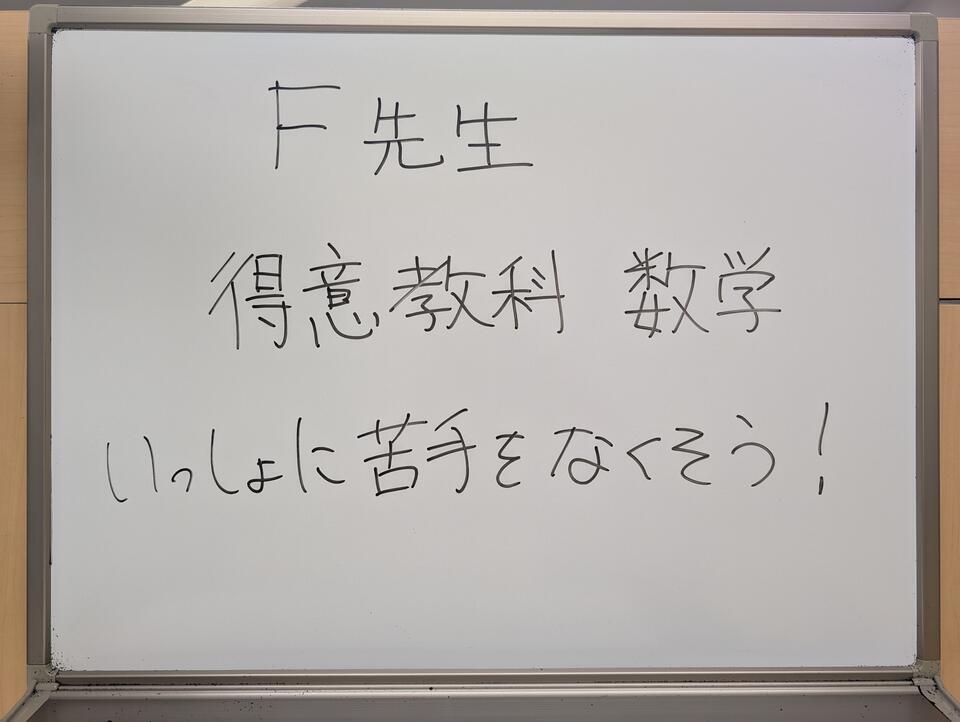 F先生
得意教科 数学
いっしょに苦手をなくそう!